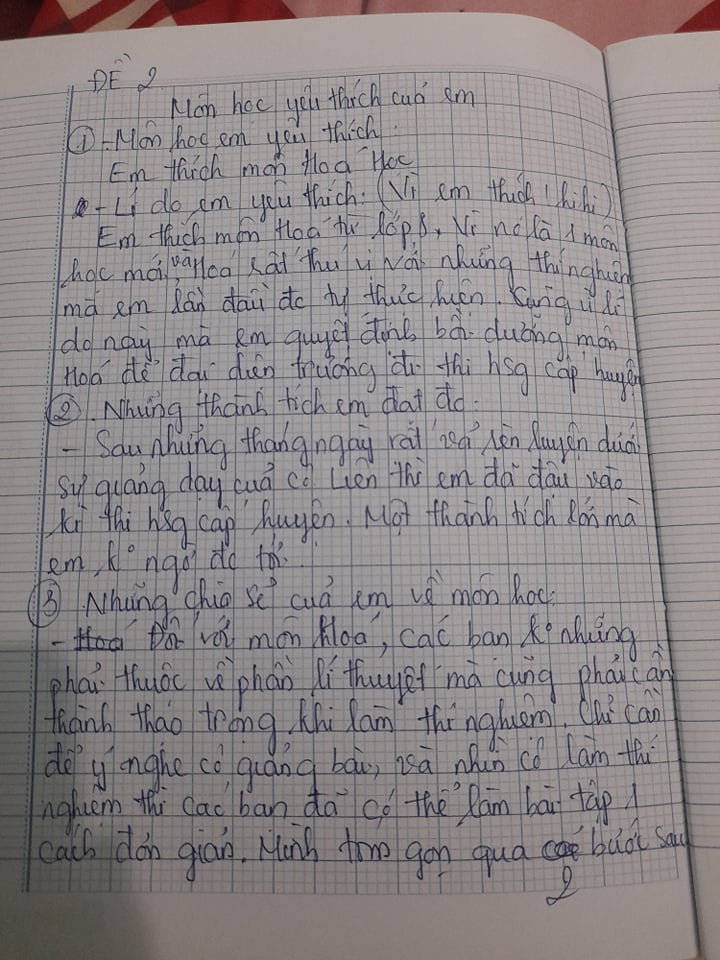 ĐỀ 2
Môn học yêu thích của em
① - Môn học em yêu thích:
Em thích môn Hoá Học
- Lí do em yêu thích: (Vì em thích! hihi)
Em thích môn Hoá từ lớp 8, Vì nó là 1 môn
học mới, và Hoá rất thú vị với những thí nghiệm
mà em lần đầu đc tự thực hiện. Cũng vì lí
do này mà em quyết định bồi dưỡng môn
Hoá để đại diện trường đi thi hsg cấp huyện
② Những thành tích em đạt đc:
- Sau những tháng ngày rất vả rèn luyện dưới
sự giảng dạy của cô Liên thì em đã đậu vào
kì thi hsg cấp huyện. Một thành tích lớn mà
em k° ngờ đc tới.
③ Những chia sẻ của em về môn học:
- Đối với môn Hoá, các bạn k° những
phải thuộc về phần lí thuyết mà cũng phải cần
thành thạo trong khi làm thí nghiệm. Chỉ cần
để ý nghe cô giảng bài, và nhìn cô làm thí
nghiệm thì các bạn đã có thể làm bài tập 1
cách đơn giản. Mình tóm gọn qua các bước sau
2